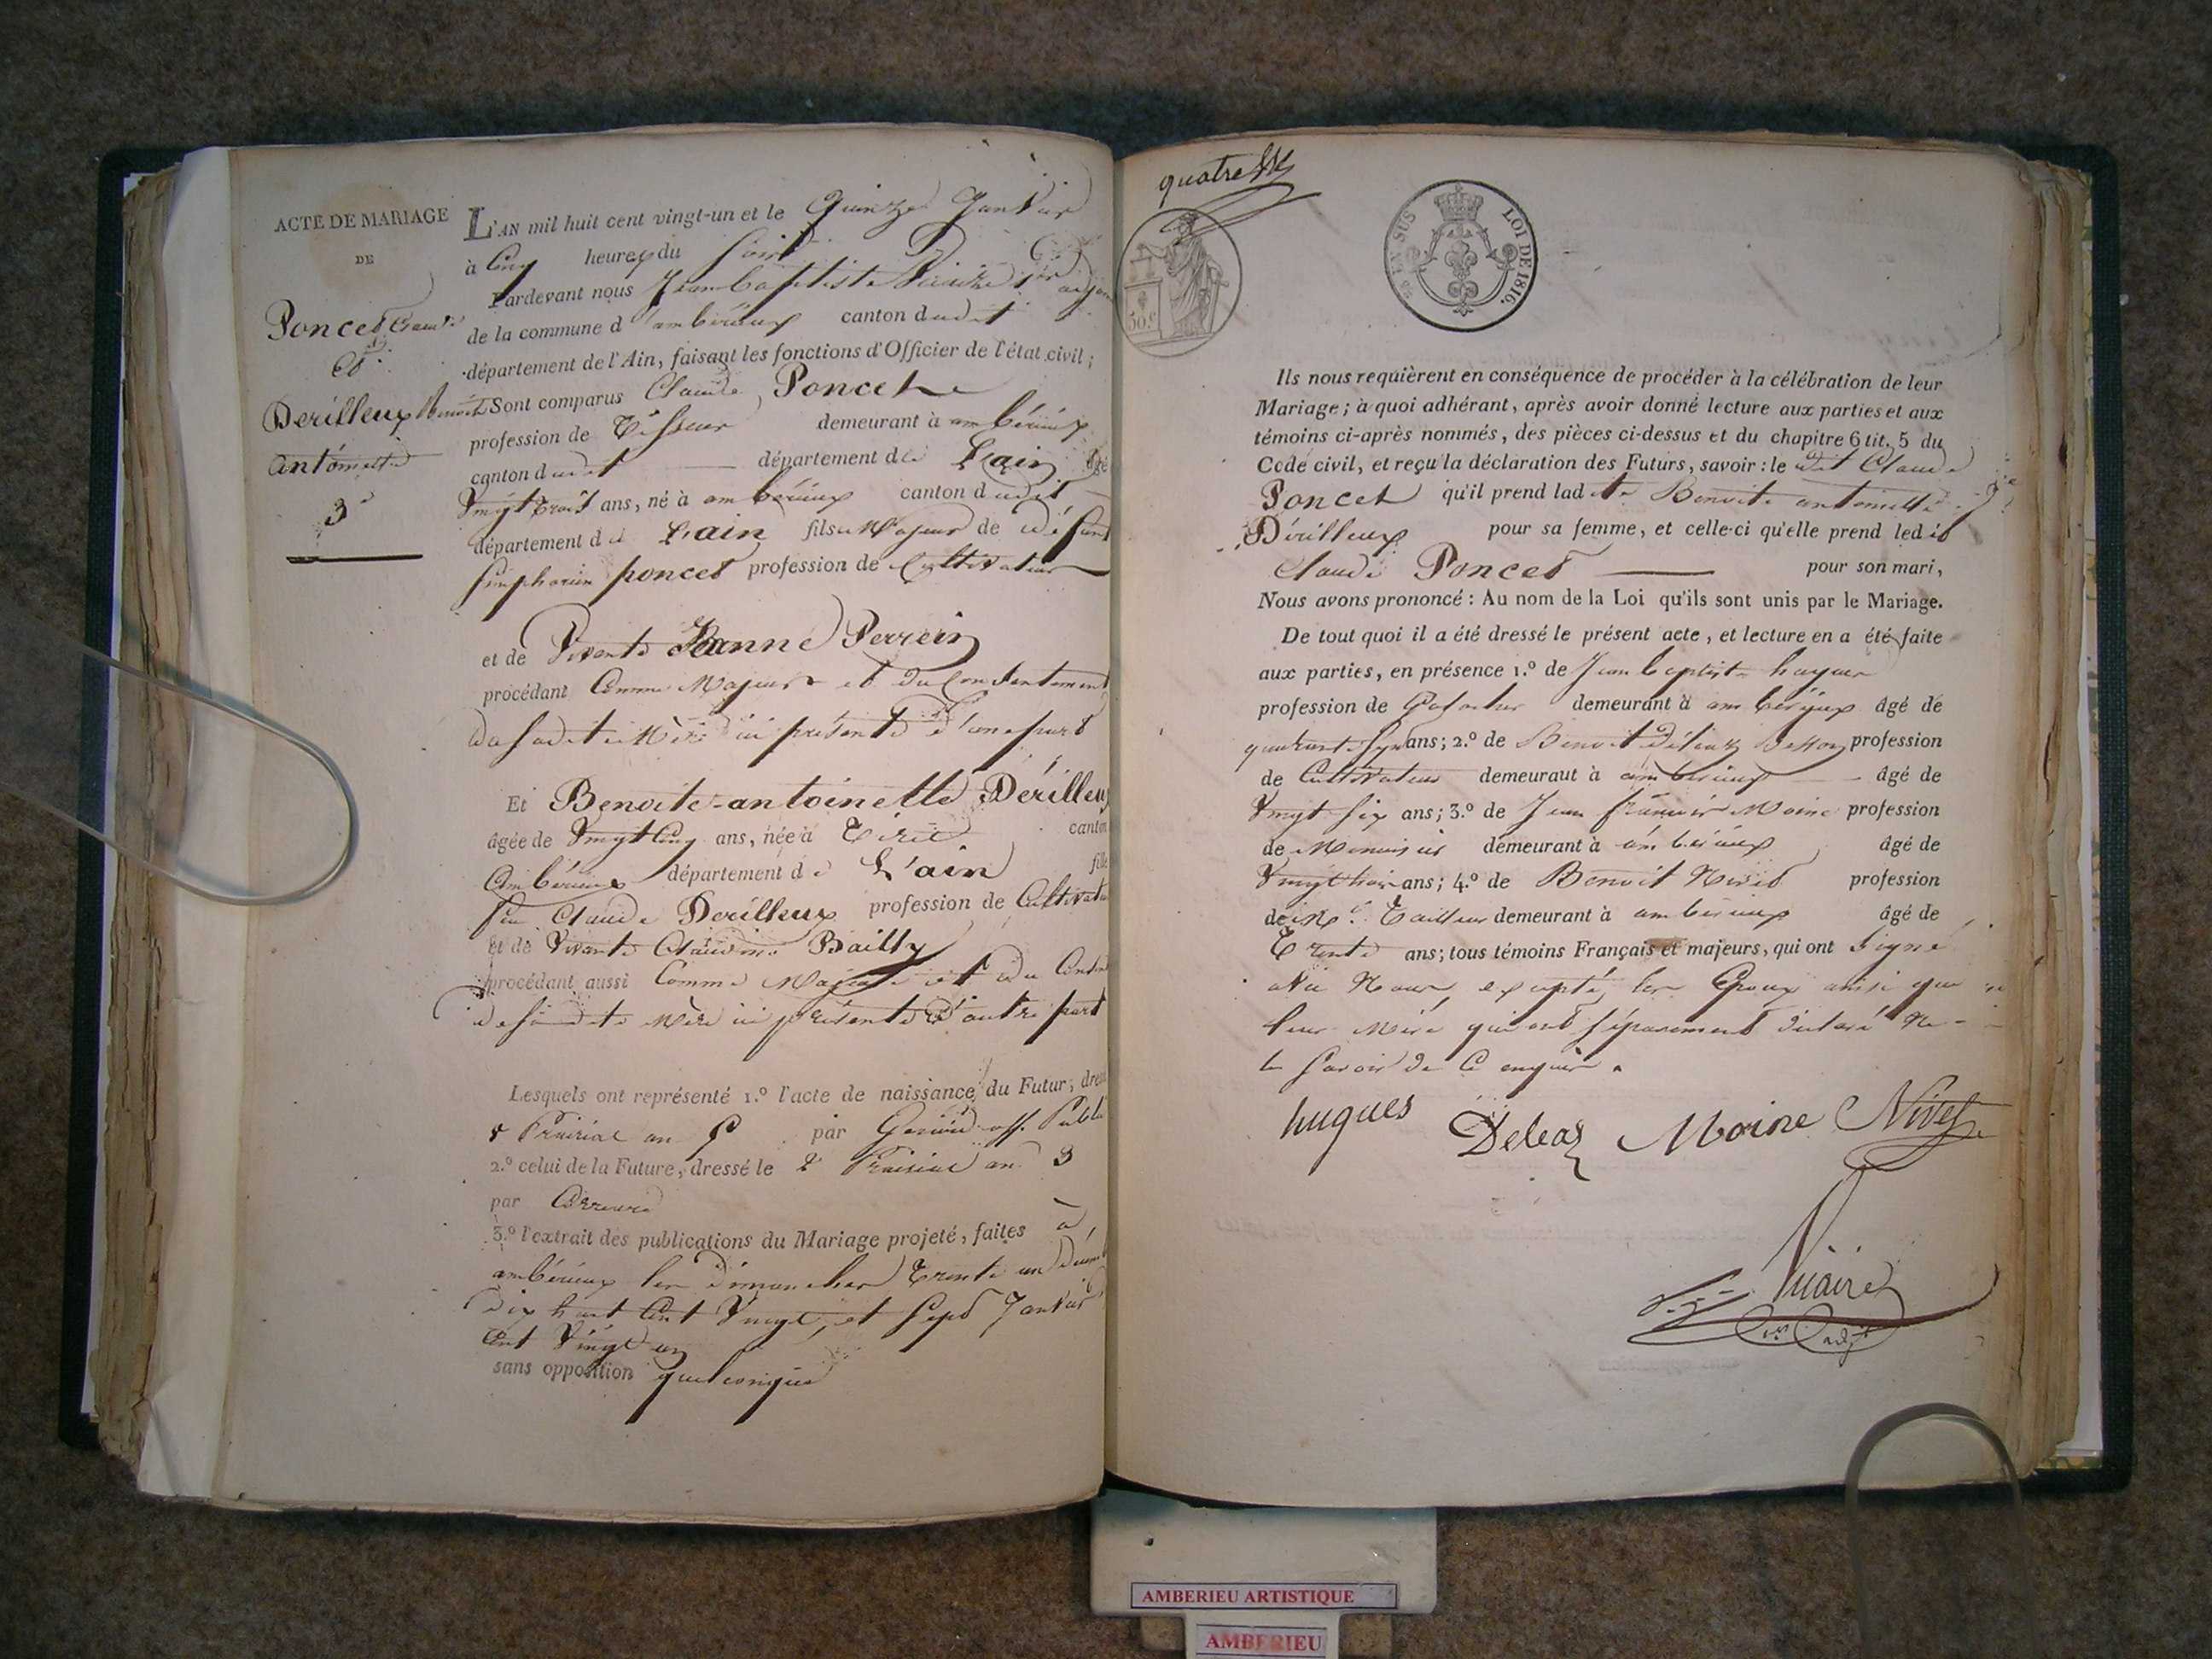 ACTE DE MARIAGE
DE
Poncet Claude
et
Derilleux Benoite
antoinette
3e
L'AN mil huit cent vingt-un et le quinze Janvier
à Cinq heures du soir
Pardevant nous Jean baptiste Vicaire 1er adjoint
de la commune d'ambérieux canton dudit
département de l'Ain, faisant les fonctions d'Officier de l'état civil;
Sont comparus Claude Poncet
profession de Tisseur demeurant à ambérieux
canton dudit département de L'ain âgé
Vingt trois ans, né à ambérieux canton dudit
département de L'ain fils Majeur de défunt
Simphorien poncet profession de Cultivateur
et de Vivante Jeanne Perrein
procédant Comme Majeur et du Consentement
de sadite Mère ici présente d'une part
Et Benoite-antoinette Dérilleux
âgée de Vingt Cinq ans, née à canton
Ambérieux département de L'ain fille
feu Claude Derilleux profession de Cultivateur
et de Vivante Claudine Bailly
procédant aussi Comme Majeure et du
de sadite Mère ici présente d'autre part
Lesquels ont représenté 1.º l'acte de naissance du Futur, dressé
Prairial an par off. Public
2.º celui de la Future, dressé le 2 Prairial an 3
par
3.º l'extrait des publications du Mariage projeté, faites à
ambérieux les dimanches Trente un décembre
dix huit Cent Vingt, et Sept Janvier
Cent Vingt un
sans opposition quelconque
quatre
EN SUS LOI DE 1816.
50.c
Ils nous requièrent en conséquence de procéder à la célébration de leur
Mariage; à quoi adhérant, après avoir donné lecture aux parties et aux
témoins ci-après nommés, des pièces ci-dessus et du chapitre 6 tit. 5 du
Code civil, et reçu la déclaration des Futurs, savoir: le dit Claude
Poncet qu'il prend ladite Benoite antoinette
Dérilleux pour sa femme, et celle-ci qu'elle prend ledit
Claude Poncet pour son mari,
Nous avons prononcé: Au nom de la Loi qu'ils sont unis par le Mariage.
De tout quoi il a été dressé le présent acte, et lecture en a été faite
aux parties, en présence 1.º de Jean baptiste hugues
profession de demeurant à ambérieux âgé de
quarante ans; 2.º de Benoit Déléaz profession
de Cultivateur demeuraut à ambérieux âgé de
Vingt six ans; 3.º de Jean françois Moine profession
de Menuisier demeurant à ambérieux âgé de
Vingt trois ans; 4.º de Benoit Nivet profession
de Tailleur demeurant à ambérieux âgé de
Trente ans; tous témoins Français et majeurs, qui ont signé
avec Nous, excepté les Epoux ainsi que
leur Mère qui ont séparément déclaré Ne
le savoir de Ce enquis.
hugues Deleaz Moine Nivet
Vicaire
1er adjt
AMBERIEU ARTISTIQUE
AMBERIEU